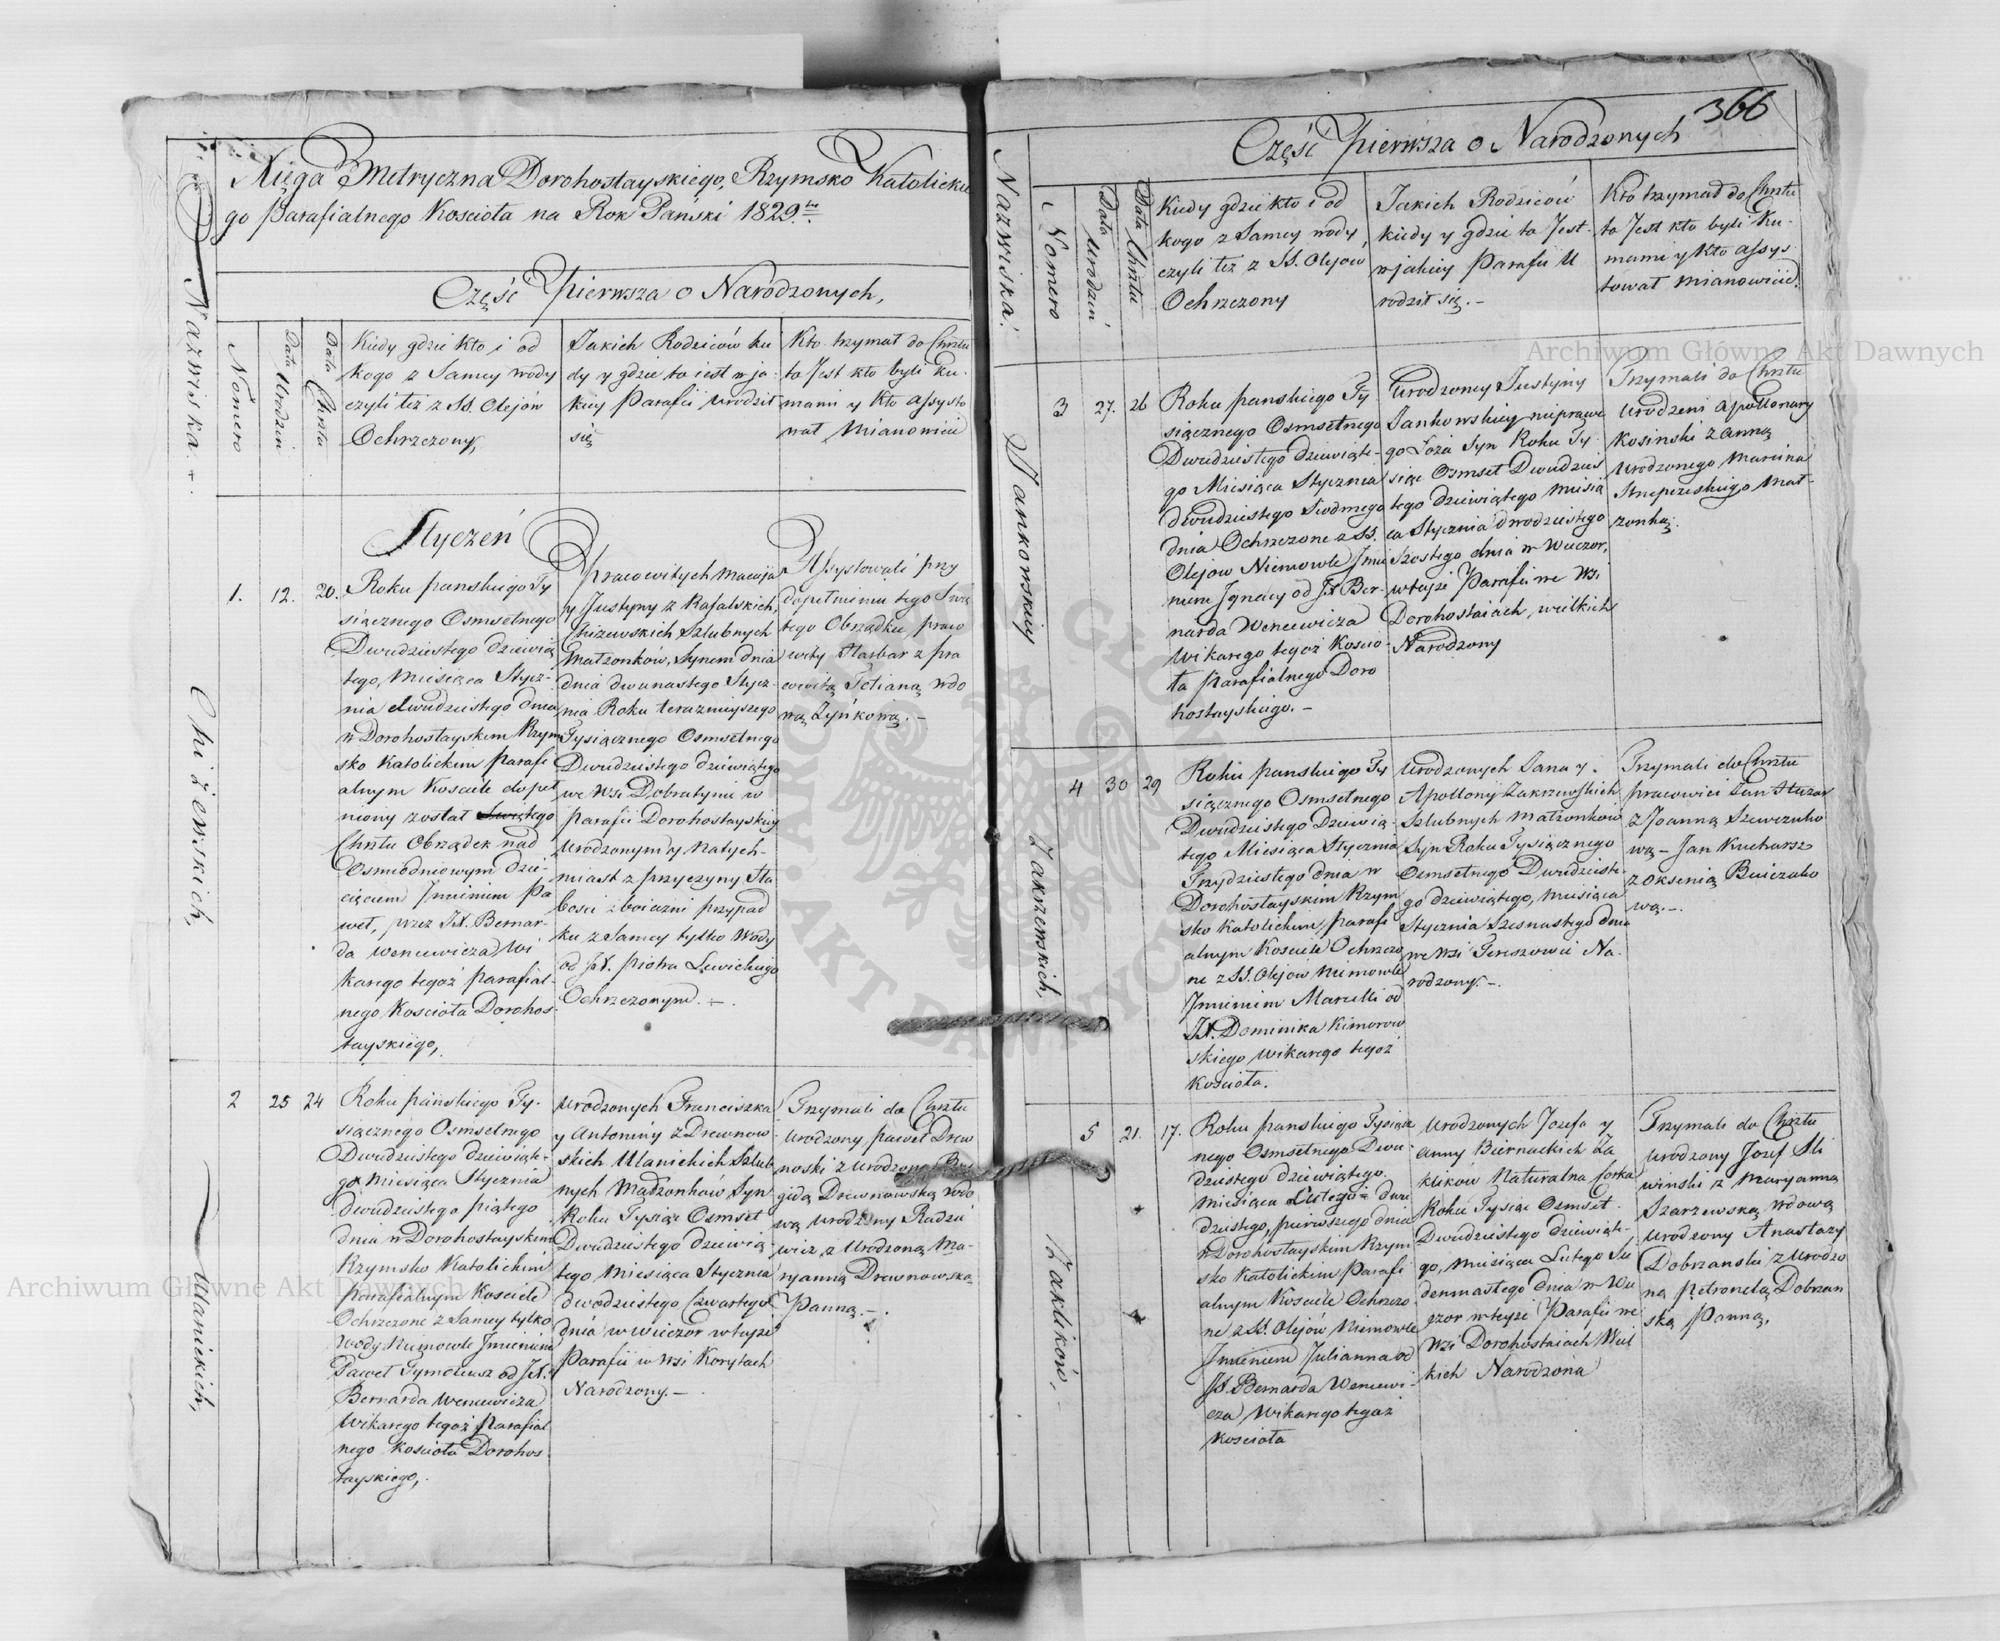 Xięga Metryczna Dorohostayskiego, Rzymsko Katolickie
go Parafialnego Kościoła na Rok Pański 1829.
Część Pierwsza o Narodzonych,
Nazwiska.
Nomero
Data Urodzeń
Data Chrztu
Kiedy gdzie kto i od
kogo z Samey wody
czyli też z SS. Olejów
Ochrzczony,
Jakich Rodziców kie
dy y gdzie to iest w ja
kiey Parafii urodził
się
Kto trzymał do Chrztu
to Jest kto byli Ku
mami y kto assysto
wał Mianowicie
Styczeń
Chiżewskich,
1. 12. 20.
Roku panskiego Ty
siącznego Osmsetnego
Dwudziestego dziewią
tego, Miesiąca Stycz-
nia dwudziestego dnia
w Dorohostayskim Rzym
sko Katolickim Parafi
alnym Kosciele dopeł
niony został Swiętego
Chrztu Obrządek nad
Osmiodniowym dzie-
cięciem Imieniem Pa
weł, przez JX. Bernar-
da Wencewicza Wi
karego tegoż parafial-
nego Kościoła Dorohos-
tayskiego,
Pracowitych Macieja
y Justyny z Rafalskich,
Chiżewskich, Szlubnych
Małżonków, Synem dnia
dnia dwunastego Stycz-
nia Roku terazniejszego
Tysiącznego Osmsetnego
Dwudziestego dziewiątego
we Wsi Dobratynie w
Parafii Dorohostayskiey
urodzonym y natych-
miast z przyczyny Sła
bosci i boiazni przypad
ku z Samey tylko Wody
od JX. Piotra Lewickiego
Ochrzczonym. -.
Assystowali przy
dopełnieniu tego Swię
tego Obrządku, praco
wity Harbar z pra
cowitą Tetianą wdo
wą Łyńkową. -
Ulanickich,
2 25 24
Roku pańskiego Ty-
siącznego Osmsetnego
Dwudziestego dziewiąte-
go Miesiąca Stycznia
dwudziestego piątego
dnia w Dorohostayskim
Rzymsko Katolickim
Parafialnym Kosciele
Ochrzczone z Samey tylko
Wody Niemowle Imieniem
Paweł Tymoteusz od JX.
Bernarda Wencewicza
Wikarego tegoż Parafial
nego Kościoła Dorohos
tayskiego,.
Urodzonych Franciszka
y Antoniny z Drewnow
skich Ulanickich Szlub
nych Małżonków, Syn
Roku Tysiąc Osmset
Dwudziestego dziewią
tego Miesiąca Stycznia
dwódziestego Czwartego
dnia w wieczór w tejże
Parafii w Wsi Korytach
Narodzony. -.
Trzymali do Chrztu
Urodzony Paweł Drew
noski z Urodzoną Bry
gidą Drewnowską wdo
wą Urodzony Radzie
wicz z Urodzoną Ma-
ryanną Drewnowską
Panną. -.
366
Część Pierwsza o Narodzonych
Nazwiska.
Nomero
Data Urodzeń
Data Chrztu
Kiedy gdzie kto i od
kogo z Samey wody,
czyli też z SS. Olejów
Ochrzczony
Jakich Rodziców
kiedy y gdzie to Jest
w jakiey Parafii U
rodził się. -
Kto trzymał do Chrztu
to Jest kto byli Ku-
mami y kto assys
tował mianowicie.
Jankowskiey
3 27. 26
Roku panskiego Ty
siącznego Osmsetnego
Dwudziestego dziewiąte-
go Miesiąca Stycznia
dwudziestego Siodmego
dnia Ochrzczone z SS.
Olejow Niemowle Imie
niem Ignacy od JX Ber-
narda Wencewicza
Wikarego tegoż Koscio
ła Parafialnego Doro
hostayskiego. -
Urodzoney Justyny
Jankowskiey nieprawe
go Łoża Syn Roku Ty
siąc Osmset Dwudzies
tego dziewiątego miesią
ca Stycznia dwodziestego
Szostego dnia w Wieczor,
w tejże Parafii we Wsi
Dorohostaiach, wielkich
Narodzony
Trzymali do Chrztu
Urodzeni Apollonary
Kosinski z Anną
Urodzonego Marcina
Małżonką.
Zakrzewskich,
4 30 29
Roku panskiego Ty
siącznego Osmsetnego
Dwudziestego Dziewią
tego Miesiąca Stycznia
Trzydziestego dnia w
Dorohostayskim Rzym
sko Katolickim, Parafi
alnym Kosciele Ochrzczo
ne z SS. Olejow Niemowle
Imieniem Marcelli od
JX. Dominika Kimorow
skiego Wikarego tegoż
Kościoła.
Urodzonych Jana y
Apollony Zakrzewskich
Szlubnych małżonkow
Syn Roku Tysiącznego
Osmsetnego Dwudzieste
go dziewiątego, miesiąca
Stycznia Szesnastego dnia
we Wsi Tereszowie Na-
rodzony. -.
Trzymali do Chrztu
pracowici Jan Huzar
z Joanną Szewczuko
wą - Jan Kucharz
z Oksenią Buiczuko
wą. -.
Zaklików, -
5 21. 17.
Roku panskiego Tysiącz
nego Osmsetnego Dwu-
dziestego dziewiątego
miesiąca Lutego dwu
dziestego, pierwszego dnia
w Dorohostayskim Rzym
sko Katolickim Parafi
alnym Kosciele Ochrzczo
ne z SS. Olejów Niemowle
Imieniem Julianna od
JX. Bernarda Wencewi-
cza Wikarego tegoż
Kościoła
Urodzonych Jozefa y
Anny Biernackich Za
klików Naturalna Corka
Roku Tysiąc Osmset
Dwudziestego dziewiąte-
go, miesiąca Lutego Sie
demnastego dnia w Wie
czor w tejże Parafii we
Wsi Dorohostaiach Wiel
kich Narodzona
Trzymali do Chrztu
Urodzony Jozef Sli
winski z Maryanną
Szarzewską wdową
Urodzony Anastazy
Dobrzanski z Urodzo
ną Petronelą Dobrzan
ską Panną,
Archiwum Główne Akt Dawnych
Archiwum Główne Akt Dawnych